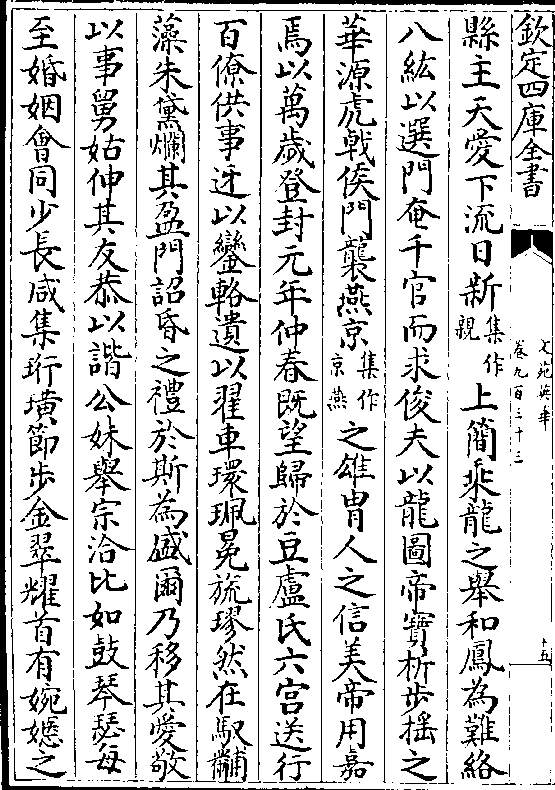 欽定四庫全書
文苑英華
卷九百三十三
十五
縣主天愛下流日新集作親上簡乘龍之舉和鳳為難絡
八紘以選門奄千官而求俊夫以龍圖帝寳析步揺之
華源虎戟侯門襲燕京集作京燕之雄胄人之信美帝用嘉
焉以萬歲登封元年仲春既望歸於豆盧氏六宫送行
百僚供事迓以鑾輅遺以翟車環珮冕旒璆然在馭黼
藻朱黛爛其盈門詔昏之禮於斯為盛爾乃移其愛敬
以事舅姑仲其友恭以諧公妹舉宗洽比如鼓琴瑟每
至婚姻會同少長咸集珩璜節步金翠耀首有婉嬺之